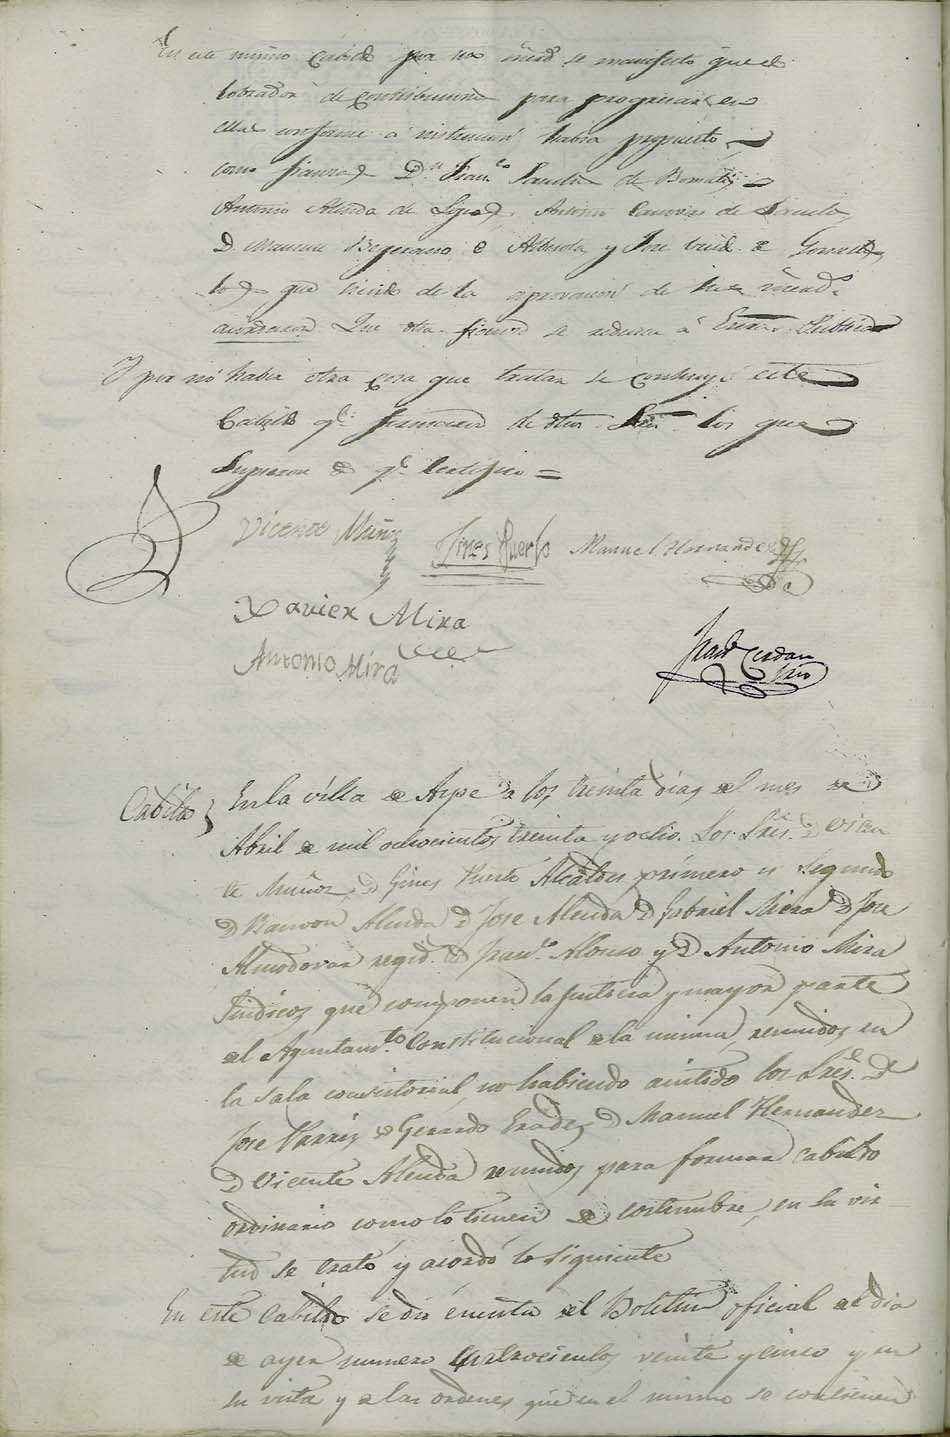 En este mismo Cabildo por sus mercd. se manifesto que el
cobrador de contribucion para progresar en
ella conforme a instruccion habia propuesto
como fianzas Dn. Franco. Sanchez de
Antonio Alenda de Antonio Canovas de
D. Manuel de y Jose
que de la aprovacion de sus mercd.
acordaron Que otra se reduzca a Publica
Y por no haber otra cosa que tratar se concluyó este
Cabildo qe. firmaron de otros Sres. los que
supieron de qe. certifico =
Vicente Muñoz Jines Puerto Manuel Hernandez
Xavier Mira
Antonio Mira
Franco. Cerdan
Srio
Cabildo En la villa de Aspe a los treinta dias del mes de
Abril de mil ochocientos treinta y ocho. Los Sres. D. Vicen
te Muñoz, D Gines Puerto Alcaldes primero y segundo
D Ramon Alenda D Jose Alenda D Gabriel Mira D Jose
Almodovar regid. D Franco. Alonso y D Antonio Mira
Sindicos que componen la Justicia y mayor parte
del Ayuntamto. Constitucional de la misma, reunidos en
la sala consistorial, no habiendo asistido los Sres. D
Jose Parres D Gerardo Erades D Manuel Hernandez
D Vicente Alenda reunidos para formar cabildo
ordinario como lo tienen de costumbre, en su vir
tud se trató y acordó lo siguiente
En este Cabildo se dio cuenta del Boletin oficial del dia
de ayer numero cuatrocientos veinte y cinco y en
su vista y de las ordenes que en el mismo se contienen